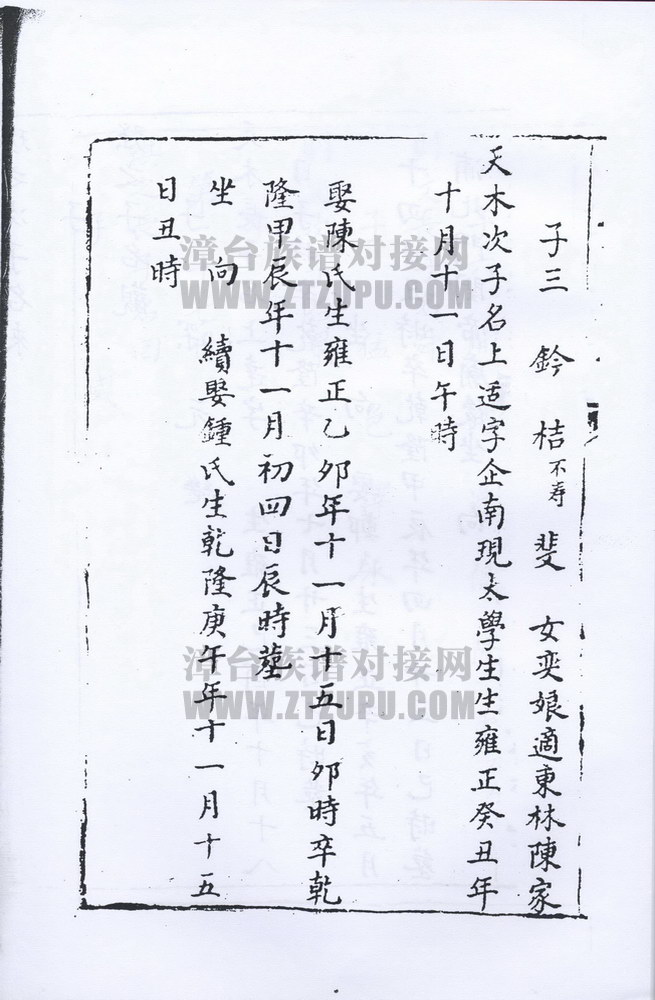 子三 鈐 桔不寿 斐 女奕娘適東林陳家
天木次子名上适字企南現太學生生雍正癸丑年
十月十一日午時
娶陳氏生雍正乙夘年十一月十五日夘時卒乾
隆甲辰年十一月初四日辰時塟
坐 向 續娶鍾氏生乾隆庚午年十一月十五
日丑時
漳台族谱对接网
WWW.ZTZUPU.COM
漳台族谱对接网
WWW.ZTZUPU.COM